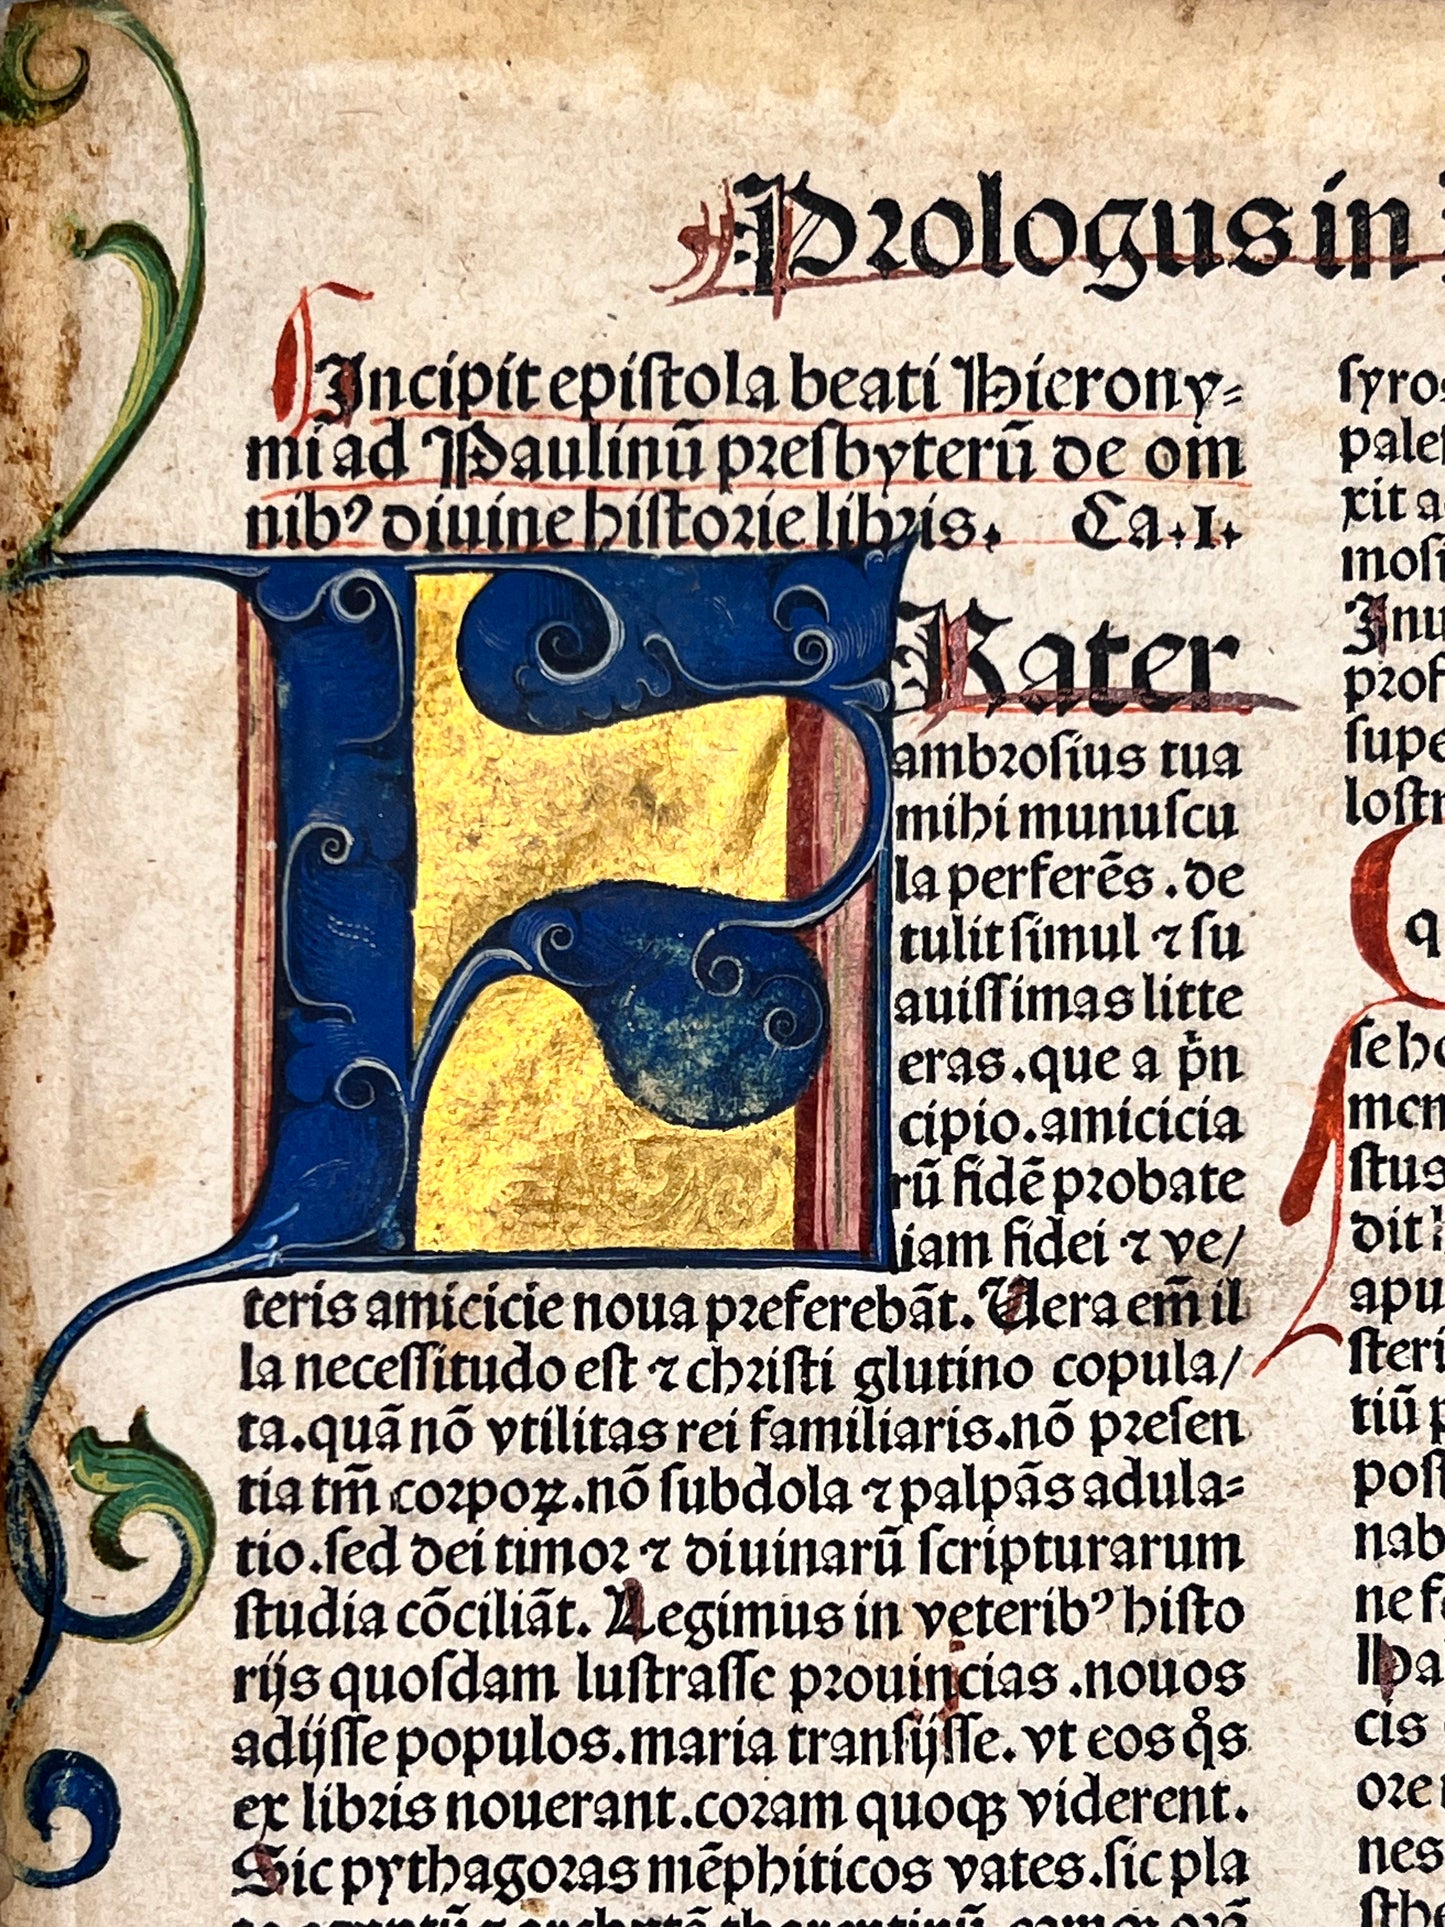 Prologus in
Incipit epiſtola beati Hierony⸗
mi ad Paulinū preſbyterū de om
nibꝰ diuine hiſtorie libris. Ca.I.
FRater
ambroſius tua
mihi munuſcu
la perferēs.de
tulit ſimul ⁊ ſu
auiſſimas litte
eras.que a pͥn
cipio.amicicia
rū fidē probate
iam fidei ⁊ ve/
teris amicicie noua preferebāt. Uera em̄ il
la neceſſitudo eſt ⁊ chriſti glutino copula/
ta.quā nō vtilitas rei familiaris.nō preſen
tia tm̄ corpoꝝ.nō ſubdola ⁊ palpās adula⸗
tio.ſed dei timor ⁊ diuinarū ſcripturarum
ſtudia cōciliāt. Legimus in veteribꝰ hiſto
rijs quoſdam luſtraſſe prouincias.nouos
adijſſe populos.maria tranſijſſe. vt eos qͦs
ex libris nouerant.coram quoqꝫ viderent.
Sic pythagoras mēphiticos vates.ſic pla
ſyro
pale
xit a
moſi
Inu
prof
ſupe
loſtr
q
ſe ho
men
ſtus
dit
apu
ſteri
tiū p
poſt
nab
ne fa
Pa
cis
ore
nes